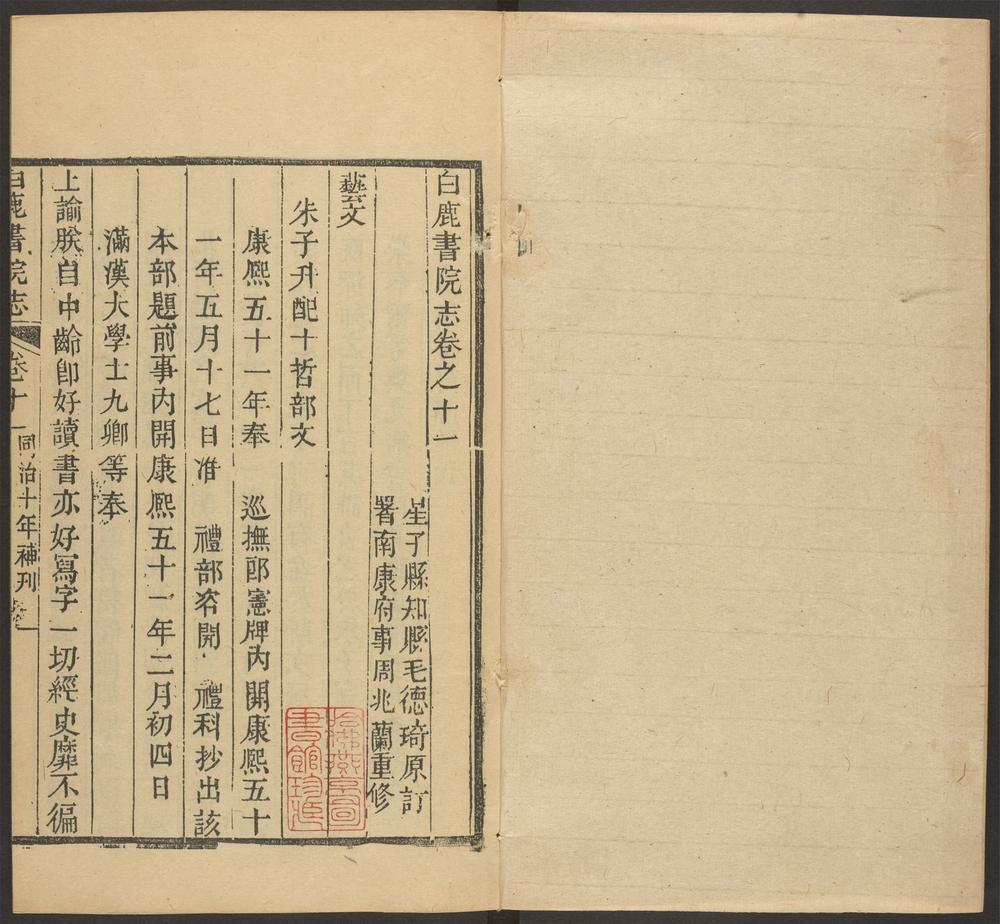 白鹿書院志卷之十一
星子縣知縣毛德琦原訂
署南康府事周兆蘭重修
藝文
朱子升配十哲部文
康熙五十一年奉　巡撫郎憲牌內開康熙五十
一年五月十七日准　禮部咨開　禮科抄出該
本部題前事內開康熙五十一年二月初四日
滿漢大學士九卿等奉
上諭朕自中齡卽好讀書亦好寫字一切經史靡不徧
白鹿書院志　卷十一　同治十年補刊　一
哈佛燕京圖
書館珍藏